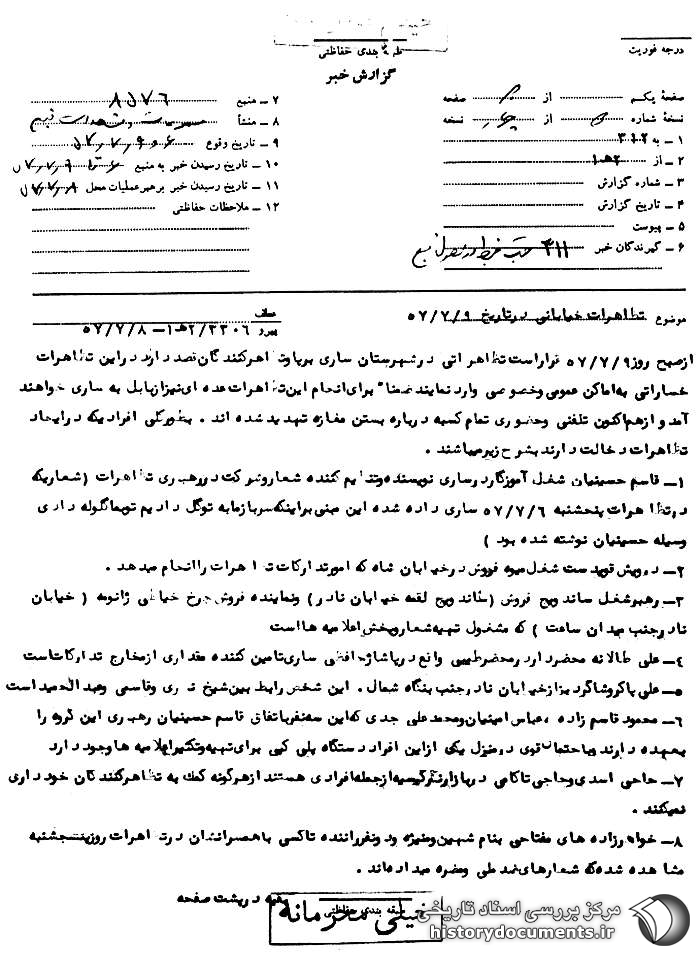 درجه فوریت
طبقه بندی حفاظتی
گزارش خبر
صفحهٔ یکم از صفحه
نسخهٔ شماره از نسخه
۱ ـ به ۳۱۲
۲ ـ از ۲هـ۱
۳ ـ شماره گزارش
۴ ـ تاریخ گزارش
۵ ـ پیوست
۶ ـ گیرندگان خبر ۳۱۱
۷ ـ منبع ۸۵۷۶
۸ ـ منشأ
۹ ـ تاریخ وقوع
۱۰ ـ تاریخ رسیدن خبر به منبع
۱۱ ـ تاریخ رسیدن خبر برهبر عملیات محل
۱۲ ـ ملاحظات حفاظتی
موضوع تظاهرات خیابانی در تاریخ ۵۷/۷/۹
عطف
پیرو ۲/۳۳۰۶هـ۱ـ ۵۷/۷/۸
از صبح روز ۵۷/۷/۹ قرار است تظاهراتی در شهرستان ساری برپا و تظاهرکنندگان قصد دارند در این تظاهرات
خساراتی به اماکن عمومی و خصوصی وارد نمایند ضمنا" برای انجام این تظاهرات عده ای نیز از بابل به ساری خواهند
آمد و از هم اکنون تلفنی و حضوری تمام کسبه درباره بستن مغازه تهدید شده اند . بطور کلی افرادیکه در ایجاد
تظاهرات دخالت دارند بشرح زیر میباشند .
۱ـ قاسم حسینیان شغل آموزگار در ساری نویسنده و تنظیم کننده شعار و شرکت در رهبری تظاهرات (شعاریکه
در تظاهرات پنجشنبه ۵۷/۷/۶ ساری داده شده این مبنی بر اینکه سرباز ما به تو گل دادیم تو بما گلوله دادی
وسیله حسینیان نوشته شده بود )
۲ـ درویش قویدست شغل میوه فروش در خیابان شاه که امور تدارکات تظاهرات را انجام میدهد .
۳ـ رهبر شغل ساندویچ فروش (ساندویچ لقمه خیابان نادر) و نماینده فروش چرخ خیاطی ژانومه ( خیابان
نادر جنب میدان ساعت ) که مشغول تهیه شعار و پخش اعلامیه ها است
۴ـ علی طالانه محضردار در محضر طبیبی واقع در پاساژ حافظی ساری تامین کننده مقداری از مخارج تدارکات است
۵ـ علی پاکرو شاگرد بزاز خیابان نادر جنب بنگاه شمال . این شخص رابط بین شیخ نظری و قاسمی و عبدالحمید است
۶ـ محمود قاسم زاده ، عباس امینیان و محمد علی جدی که این سه نفر باتفاق قاسم حسینیان رهبری این گروه را
بعهده دارند و باحتمال قوی در منزل یکی از این افراد دستگاه پلی کپی برای تهیه و تکثیر اعلامیه ها وجود دارد
۷ـ حاجی اسدی و حاجی تاکامی در بازار نرگسیه از جمله افرادی هستند از هرگونه کمک به تظاهرکنندگان خودداری
نمیکنند .
۸ـ خواهرزاده های مفتاحی بنام شهین و منیژه و دو نفر راننده تاکسی با همسرانشان در تظاهرات روز پنجشنبه
مشاهده شده که شعارهای ضد ملی و مضره میداده اند .
بقیه در پشت صفحه
طبقه بندی حفاظتی
خیلی محرمانه
مرکز بررسی اسناد تاریخی
historydocuments.ir